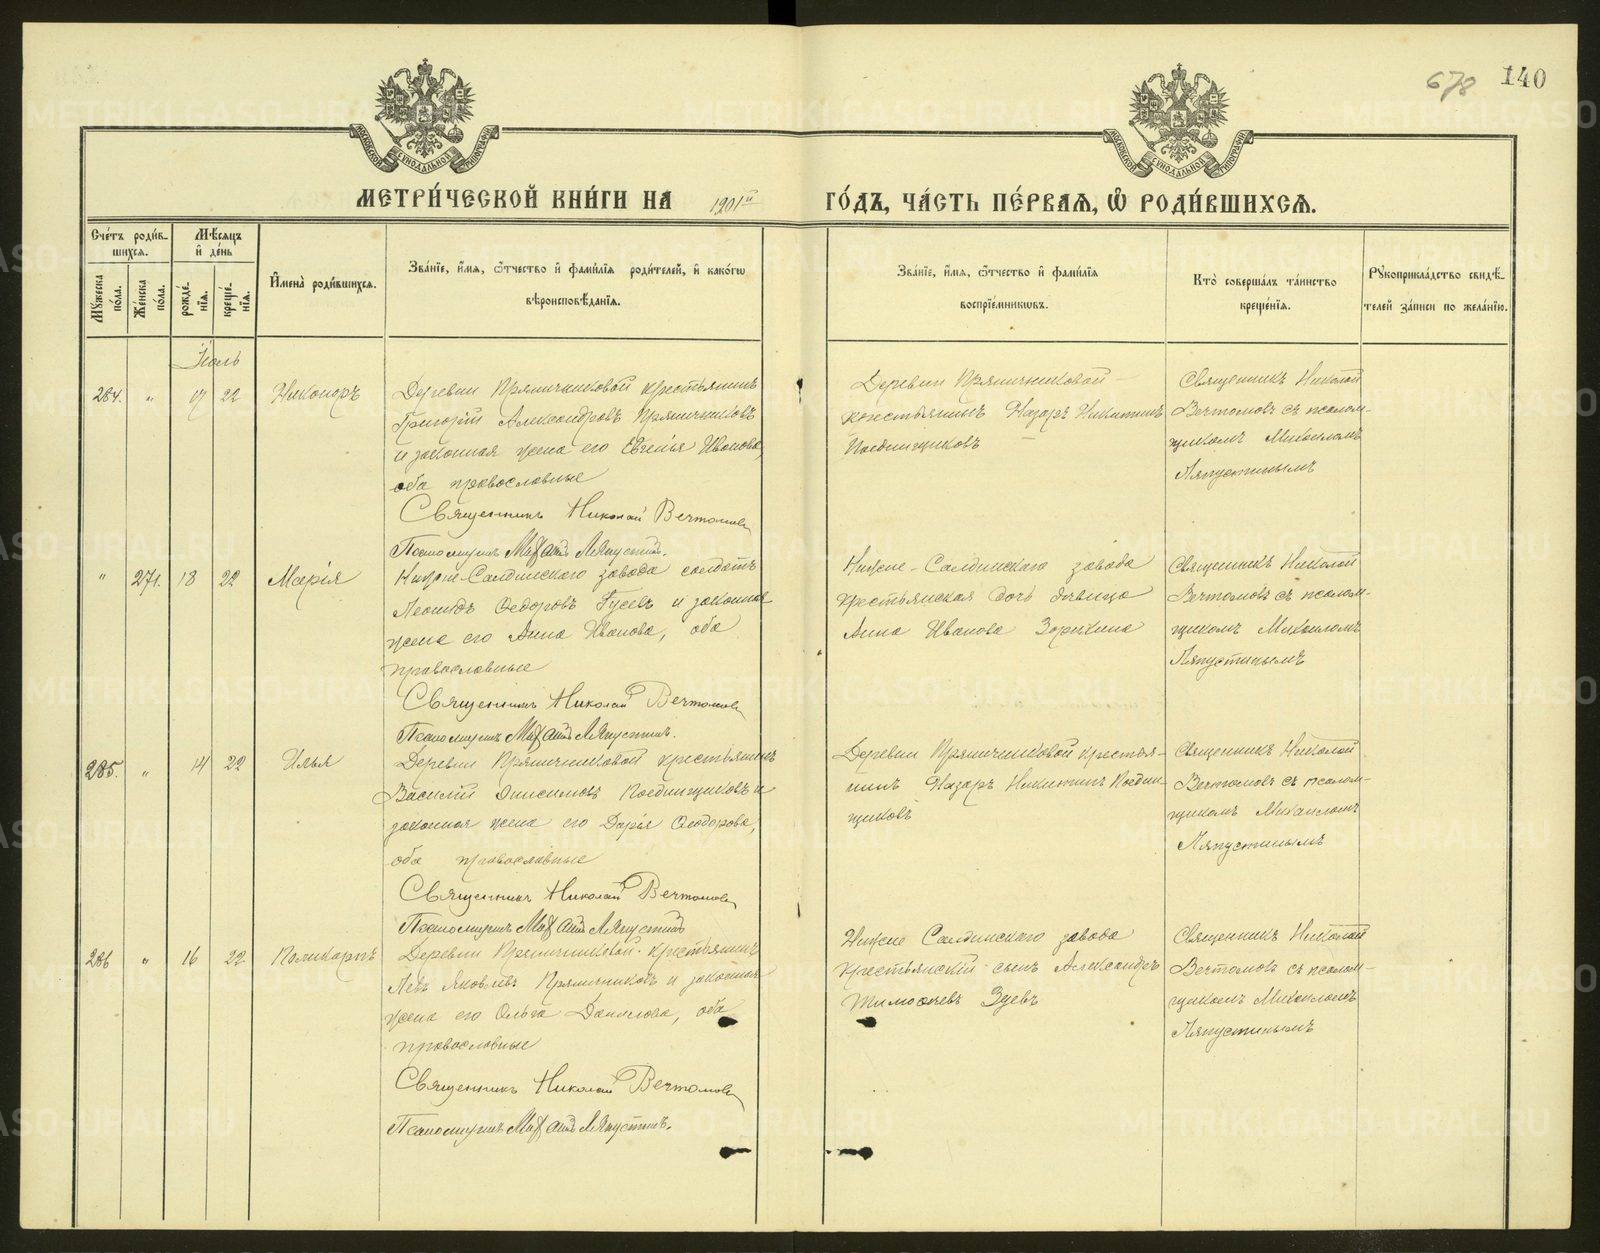 678 140
МОСКОВСКОЙ СУНОДАЛЬНОЙ ТИПОГРАФІИ
МОСКОВСКОЙ СУНОДАЛЬНОЙ ТИПОГРАФІИ
МЕТРИ́ЧЕСКОЙ КНИ́ГИ НА 1901й ГО́ДЪ, ЧА́СТЬ ПЕ́РВАЯ, Ѽ РОДИ́ВШИХСЯ.
Сче́тъ роди́в-
шихся.
Му́жеска по́ла.
Же́нска по́ла.
Мѣ́сяцъ
и҆ де́нь
рожде́-
нїя.
креще́-
нїя.
И҆мена̀ роди́вшихся.
Зва́нїе, и҆́мя, ѻ҆́тчество и҆ фами́лїя роди́телей, и҆ како́гѡ
вѣроисповѣ́данїя.
Зва́нїе, и҆́мя, ѻ҆́тчество и҆ фами́лїя
воспрїе́мникѡвъ.
Кто̀ соверша́лъ та́инство
креще́нїя.
Рꙋкоприкла́дство свидѣ́-
телей за́писи по жела́нїю.
Іюль
284. " 17 22 Никоноръ
Деревни Пряничниковой крестьянинъ
Григорій Александровъ Пряничниковъ
и законная жена его Евгенья Иванова,
оба православные
Священникъ Николай Вечтомовъ
Псаломщикъ Михаилъ Ляпустинъ.
Деревни Пряничниковой
крестьянинъ Назаръ Никитинъ
Поединщиковъ
Священникъ Николай
Вечтомовъ съ псалом-
щикомъ Михаиломъ
Ляпустинымъ
" 271. 18 22 Марія
Нижне-Салдинского завода солдатъ
Леонидъ Ѳедоровъ Гусевъ и законная
жена его Анна Иванова, оба
православные
Священникъ Николай Вечтомовъ
Псаломщикъ Михаилъ Ляпустинъ.
Нижне-Салдинского завода
крестьянская дочь дѣвица
Анна Иванова Зорихина
Священникъ Николай
Вечтомовъ съ псалом-
щикомъ Михаиломъ
Ляпустинымъ
285. " 14 22 Илья
Деревни Пряничниковой крестьянинъ
Василій Анисимовъ Поединщиковъ и
законная жена его Дарья Ѳеодорова,
оба православные
Священникъ Николай Вечтомовъ
Псаломщикъ Михаилъ Ляпустинъ
Деревни Пряничниковой крестья-
нинъ Назаръ Никитинъ Поедин-
щиковъ
Священникъ Николай
Вечтомовъ съ псалом-
щикомъ Михаиломъ
Ляпустинымъ
286 " 16 22 Поликарпъ
Деревни Пряничниковой крестьянинъ
Левъ Яковлевъ Пряничниковъ и законная
жена его Ольга Данилова, оба
православные
Священникъ Николай Вечтомовъ
Псаломщикъ Михаилъ Ляпустинъ.
Нижне Салдинского завода
крестьянскій сынъ Александръ
Тимоѳеевъ Зуевъ
Священникъ Николай
Вечтомовъ съ псалом-
щикомъ Михаиломъ
Ляпустинымъ
METRIKI.GASO-URAL.RU